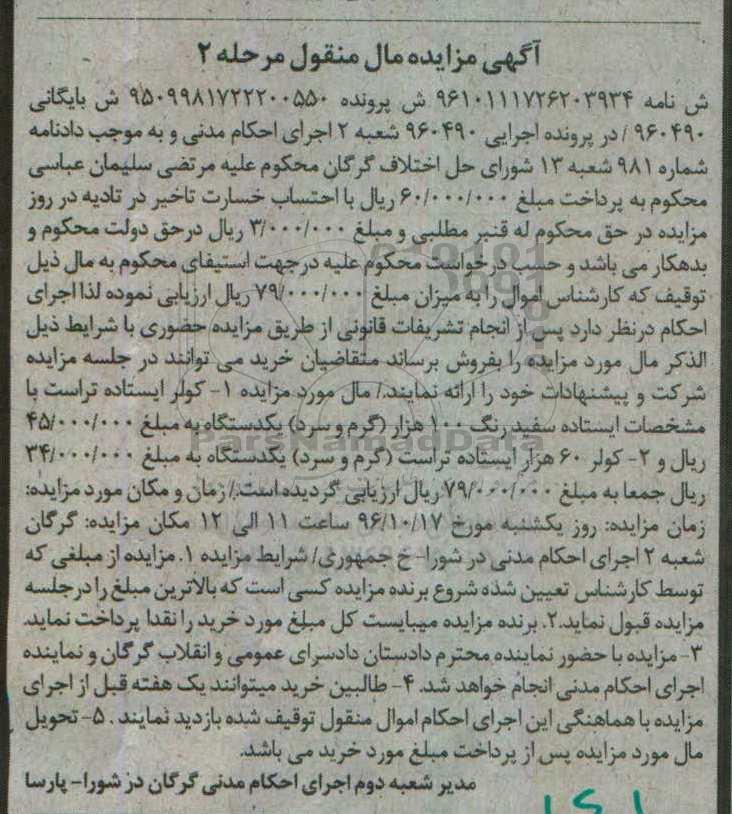 آگهی مزایده مال منقول مرحله ۲
ش نامه ۹۶۱۰۱۱۱۷۲۶۲۰۳۹۳۴ ش پرونده ۹۵۰۹۹۸۱۷۲۲۲۰۰۵۵۰ ش بایگانی
۹۶۰۴۹۰ / در پرونده اجرایی ۹۶۰۴۹۰ شعبه ۲ اجرای احکام مدنی و به موجب دادنامه
شماره ۹۸۱ شعبه ۱۳ شورای حل اختلاف گرگان محکوم علیه مرتضی سلیمان عباسی
محکوم به پرداخت مبلغ ۶۰/۰۰۰/۰۰۰ ریال با احتساب خسارت تاخیر در تادیه در روز
مزایده در حق محکوم له قنبر مطلبی و مبلغ ۳/۰۰۰/۰۰۰ ریال درحق دولت محکوم و
بدهکار می باشد و حسب درخواست محکوم علیه درجهت استیفای محکوم به مال ذیل
توقیف که کارشناس اموال را به میزان مبلغ ۷۹/۰۰۰/۰۰۰ ریال ارزیابی نموده لذا اجرای
احکام درنظر دارد پس از انجام تشریفات قانونی از طریق مزایده حضوری با شرایط ذیل
الذکر مال مورد مزایده را بفروش برساند متقاضیان خرید می توانند در جلسه مزایده
شرکت و پیشنهادات خود را ارائه نمایند./ مال مورد مزایده ۱- کولر ایستاده تراست با
مشخصات ایستاده سفید رنگ ۱۰۰ هزار (گرم و سرد) یکدستگاه به مبلغ ۴۵/۰۰۰/۰۰۰
ریال و ۲- کولر ۶۰ هزار ایستاده تراست (گرم و سرد) یکدستگاه به مبلغ ۳۴/۰۰۰/۰۰۰
ریال جمعا به مبلغ ۷۹/۰۰۰/۰۰۰ ریال ارزیابی گردیده است./ زمان و مکان مورد مزایده:
زمان مزایده: روز یکشنبه مورخ ۹۶/۱۰/۱۷ ساعت ۱۱ الی ۱۲ مکان مزایده: گرگان
شعبه ۲ اجرای احکام مدنی در شورا- خ جمهوری/ شرایط مزایده ۱. مزایده از مبلغی که
توسط کارشناس تعیین شده شروع برنده مزایده کسی است که بالاترین مبلغ را درجلسه
مزایده قبول نماید.۲. برنده مزایده میبایست کل مبلغ مورد خرید را نقدا پرداخت نماید.
۳- مزایده با حضور نماینده محترم دادستان دادسرای عمومی و انقلاب گرگان و نماینده
اجرای احکام مدنی انجام خواهد شد. ۴- طالبین خرید میتوانند یک هفته قبل از اجرای
مزایده با هماهنگی این اجرای احکام اموال منقول توقیف شده بازدید نمایند . ۵- تحویل
مال مورد مزایده پس از پرداخت مبلغ مورد خرید می باشد.
مدیر شعبه دوم اجرای احکام مدنی گرگان در شورا- پارسا
ParsNamadData